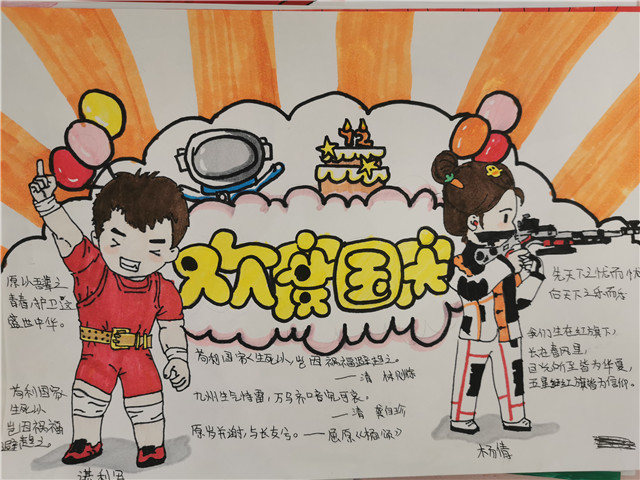 72
欢度国庆
愿以吾辈之
青春，护卫这
盛世中华。
苟利国家
生死以
岂因祸福
避趋之。
苟利国家生死以，岂因祸福避趋之。
——清 林则徐
九州生气恃风雷，万马齐喑究可哀。
——清 龚自珍
愿岁并谢，与长友兮。——屈原《橘颂》
先天下之忧而忧
后天下之乐而乐
我们生在红旗下，
长在春风里，
目光所至皆为华夏，
五星红旗皆为信仰。
杨倩